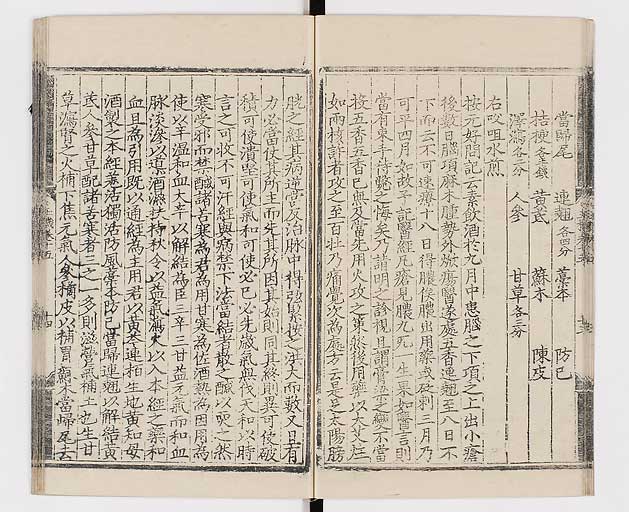 當歸尾 連翹各四分 藁本 防己
桔梗各半錢 黃芪 蘇木 陳皮
澤瀉各二分 人參 甘草各三分
右㕮咀水煎
按元好問記云素飲酒於九月中患腦之下項之上出小瘡
後數日腦項麻木腫勢外散瘍醫遂處五香連翹至八日不
下而云不可速療十八日得膿俟膿出用藥或砭刺三月乃
可平四月如故予記醫經凡瘡見膿九死一生果如醫言則
當有束手待斃之悔矣乃請明之診視且謂膏粱之變不當
投五香五香已無及當先用火攻之策然後用藥以大艾炷
如兩核許者攻之至百壯乃痛覺次為處方云是足太陽膀
胱之經其病逆當反治脉中得弦緊按之洪大而數又且有
力必當伏其所主而先其所因其始則同其終則異可使破
積可使潰堅可使氣和可使必已必先歲氣無伐天和以時
言之可收不可汗經與病禁下法當結者散之鹹以耎之然
寒受邪而禁鹹諸苦寒為君為用甘寒為佐酒熱為因用為
使以辛溫和血大辛以解結為臣三辛三甘益元氣而和血
脉淡滲以導酒濕扶持秋令以益氣瀉火以入本經之藥和
血且為引用既以通經為主用君以黃芩連柏生地黃知母
酒製之本經羗活獨活防風藁本防己當歸連翹以解結黃
芪人參甘草配諸苦寒者三之一多則滋營氣補土也生甘
草瀉腎之火補下焦元氣人參橘皮以補胃氣蘇木當歸尾去